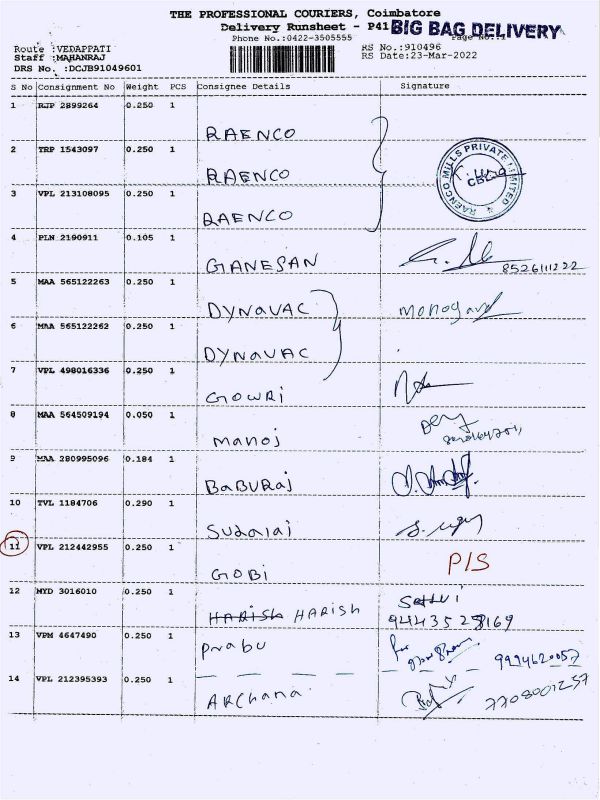 THE PROFESSIONAL COURIERS, Coimbatore
Delivery Runsheet - P41 BIG BAG DELIVERY
Phone No.:0422-3505555 Page No.:1
Route :VEDAPPATI RS No.:910496
Staff :MAHANRAJ RS Date:23-Mar-2022
DRS No. :DCJB91049601
S No Consignment No Weight PCS Consignee Details Signature
1 RJP 2899264 0.250 1
RAENCO
2 TRP 1543097 0.250 1
RAENCO
RAENCO MILLS PRIVATE LIMITED
CBE
3 VPL 213108095 0.250 1
RAENCO
4 PLN 2190911 0.105 1
GANESAN 8526111222
5 MAA 565122263 0.250 1
DYNAVAC
6 MAA 565122262 0.250 1
DYNAVAC
7 VPL 498016336 0.250 1
GOWRI
8 MAA 564509194 0.050 1
manoj
9 MAA 280995096 0.184 1
BABURAJ
10 TVL 1184706 0.290 1
Sudalai
11 VPL 212442955 0.250 1 P/S
GOBI
12 MYD 3016010 0.250 1
HARISH HARISH
13 VPM 4647490 0.250 1
prabu
14 VPL 212395393 0.250 1
ARchana 7708001257